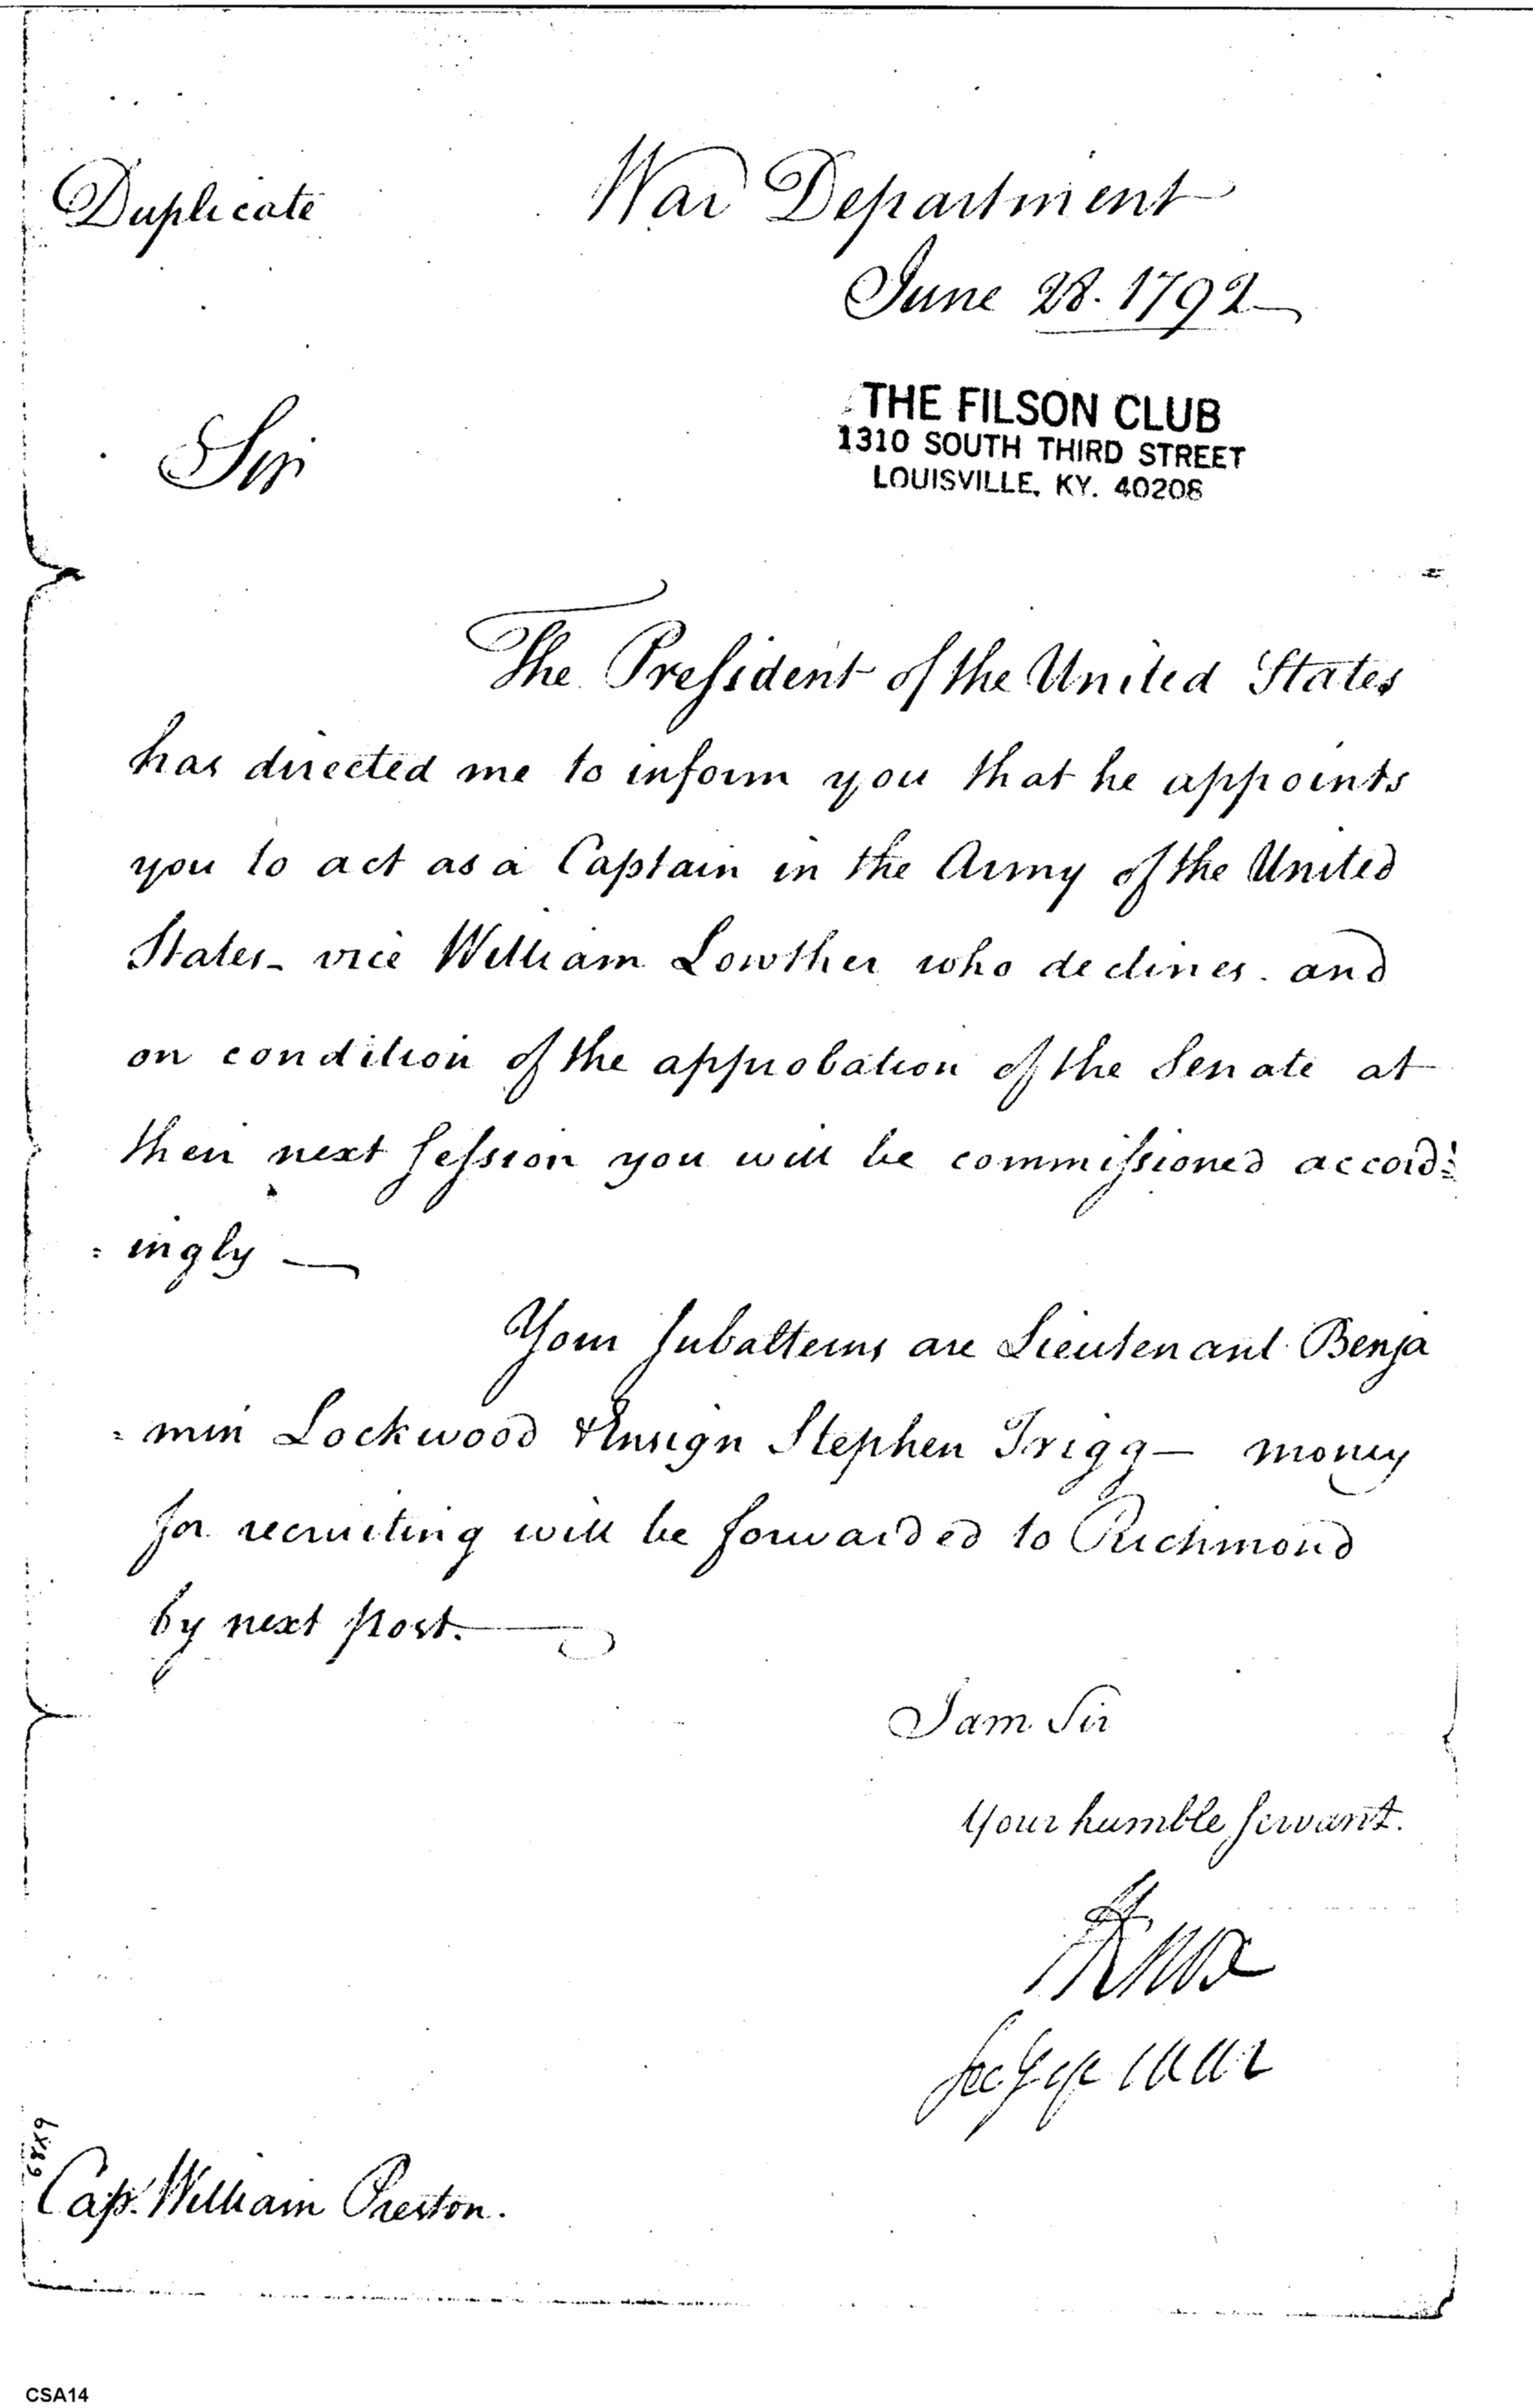 Duplicate
War Department
June 28. 1792
THE FILSON CLUB
1310 SOUTH THIRD STREET
LOUISVILLE, KY. 40208
Sir
The President of the United States
has directed me to inform you that he appoints
you to act as a Captain in the Army of the United
States - vice William Lowther who declines. and
on condition of the approbation of the Senate at
their next session you will be commissioned accord=
= ingly —
Your subalterns are Lieutenant Benja
= min Lockwood & Ensign Stephen Trigg — money
for recruiting will be forwarded to Richmond
by next post. —
I am Sir
Your humble servant.
HKnox
Secy of War
6X89
Capt. William Preston.
CSA14